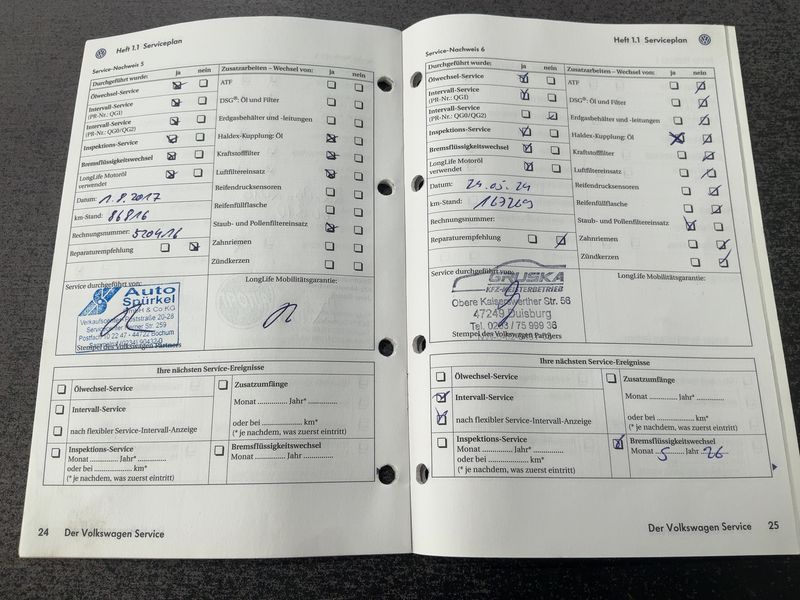 Heft 1.1 Serviceplan
Service-Nachweis 5
Durchgeführt wurde: ja nein
Ölwechsel-Service
Intervall-Service
(PR-Nr.: QG1)
Intervall-Service
(PR-Nr.: QG0/QG2)
Inspektions-Service
Bremsflüssigkeitswechsel
LongLife Motoröl
verwendet
Datum: 1.8.2017
km-Stand: 86816
Rechnungsnummer: 520416
Reparaturempfehlung
Zusatzarbeiten – Wechsel von: ja nein
ATF
DSG®: Öl und Filter
Erdgasbehälter und -leitungen
Haldex-Kupplung: Öl
Kraftstofffilter
Luftfiltereinsatz
Reifendrucksensoren
Reifenfüllflasche
Staub- und Pollenfiltereinsatz
Zahnriemen
Zündkerzen
Service durchgeführt von:
Auto
Spürkel
GmbH & Co KG
Verkaufscenter Poststraße 20-26
Servicecenter Werner Str. 259
Postfach 10 22 47 - 44722 Bochum
Stempel des Volkswagen Partners
LongLife Mobilitätsgarantie:
Ihre nächsten Service-Ereignisse
Ölwechsel-Service
Intervall-Service
nach flexibler Service-Intervall-Anzeige
Zusatzumfänge
Monat .............. Jahr* ..............
oder bei .................... km*
(* je nachdem, was zuerst eintritt)
Inspektions-Service
Monat .......... Jahr* ..........
oder bei ................ km*
(* je nachdem, was zuerst eintritt)
Bremsflüssigkeitswechsel
Monat .............. Jahr ..............
24 Der Volkswagen Service
Heft 1.1 Serviceplan
Service-Nachweis 6
Durchgeführt wurde: ja nein
Ölwechsel-Service
Intervall-Service
(PR-Nr.: QG1)
Intervall-Service
(PR-Nr.: QG0/QG2)
Inspektions-Service
Bremsflüssigkeitswechsel
LongLife Motoröl
verwendet
Datum: 24.05.24
km-Stand: 167269
Rechnungsnummer:
Reparaturempfehlung
Zusatzarbeiten – Wechsel von: ja nein
ATF
DSG®: Öl und Filter
Erdgasbehälter und -leitungen
Haldex-Kupplung: Öl
Kraftstofffilter
Luftfiltereinsatz
Reifendrucksensoren
Reifenfüllflasche
Staub- und Pollenfiltereinsatz
Zahnriemen
Zündkerzen
Service durchgeführt von:
GRUSKA
KFZ-MEISTERBETRIEB
Obere Kaiserswerther Str. 56
47249 Duisburg
Tel. 0203 / 75 999 36
Stempel des Volkswagen Partners
LongLife Mobilitätsgarantie:
Ihre nächsten Service-Ereignisse
Ölwechsel-Service
Intervall-Service
nach flexibler Service-Intervall-Anzeige
Zusatzumfänge
Monat .............. Jahr* ..............
oder bei .................... km*
(* je nachdem, was zuerst eintritt)
Inspektions-Service
Monat .......... Jahr* ..........
oder bei ................ km*
(* je nachdem, was zuerst eintritt)
Bremsflüssigkeitswechsel
Monat 5 Jahr 26
Der Volkswagen Service 25